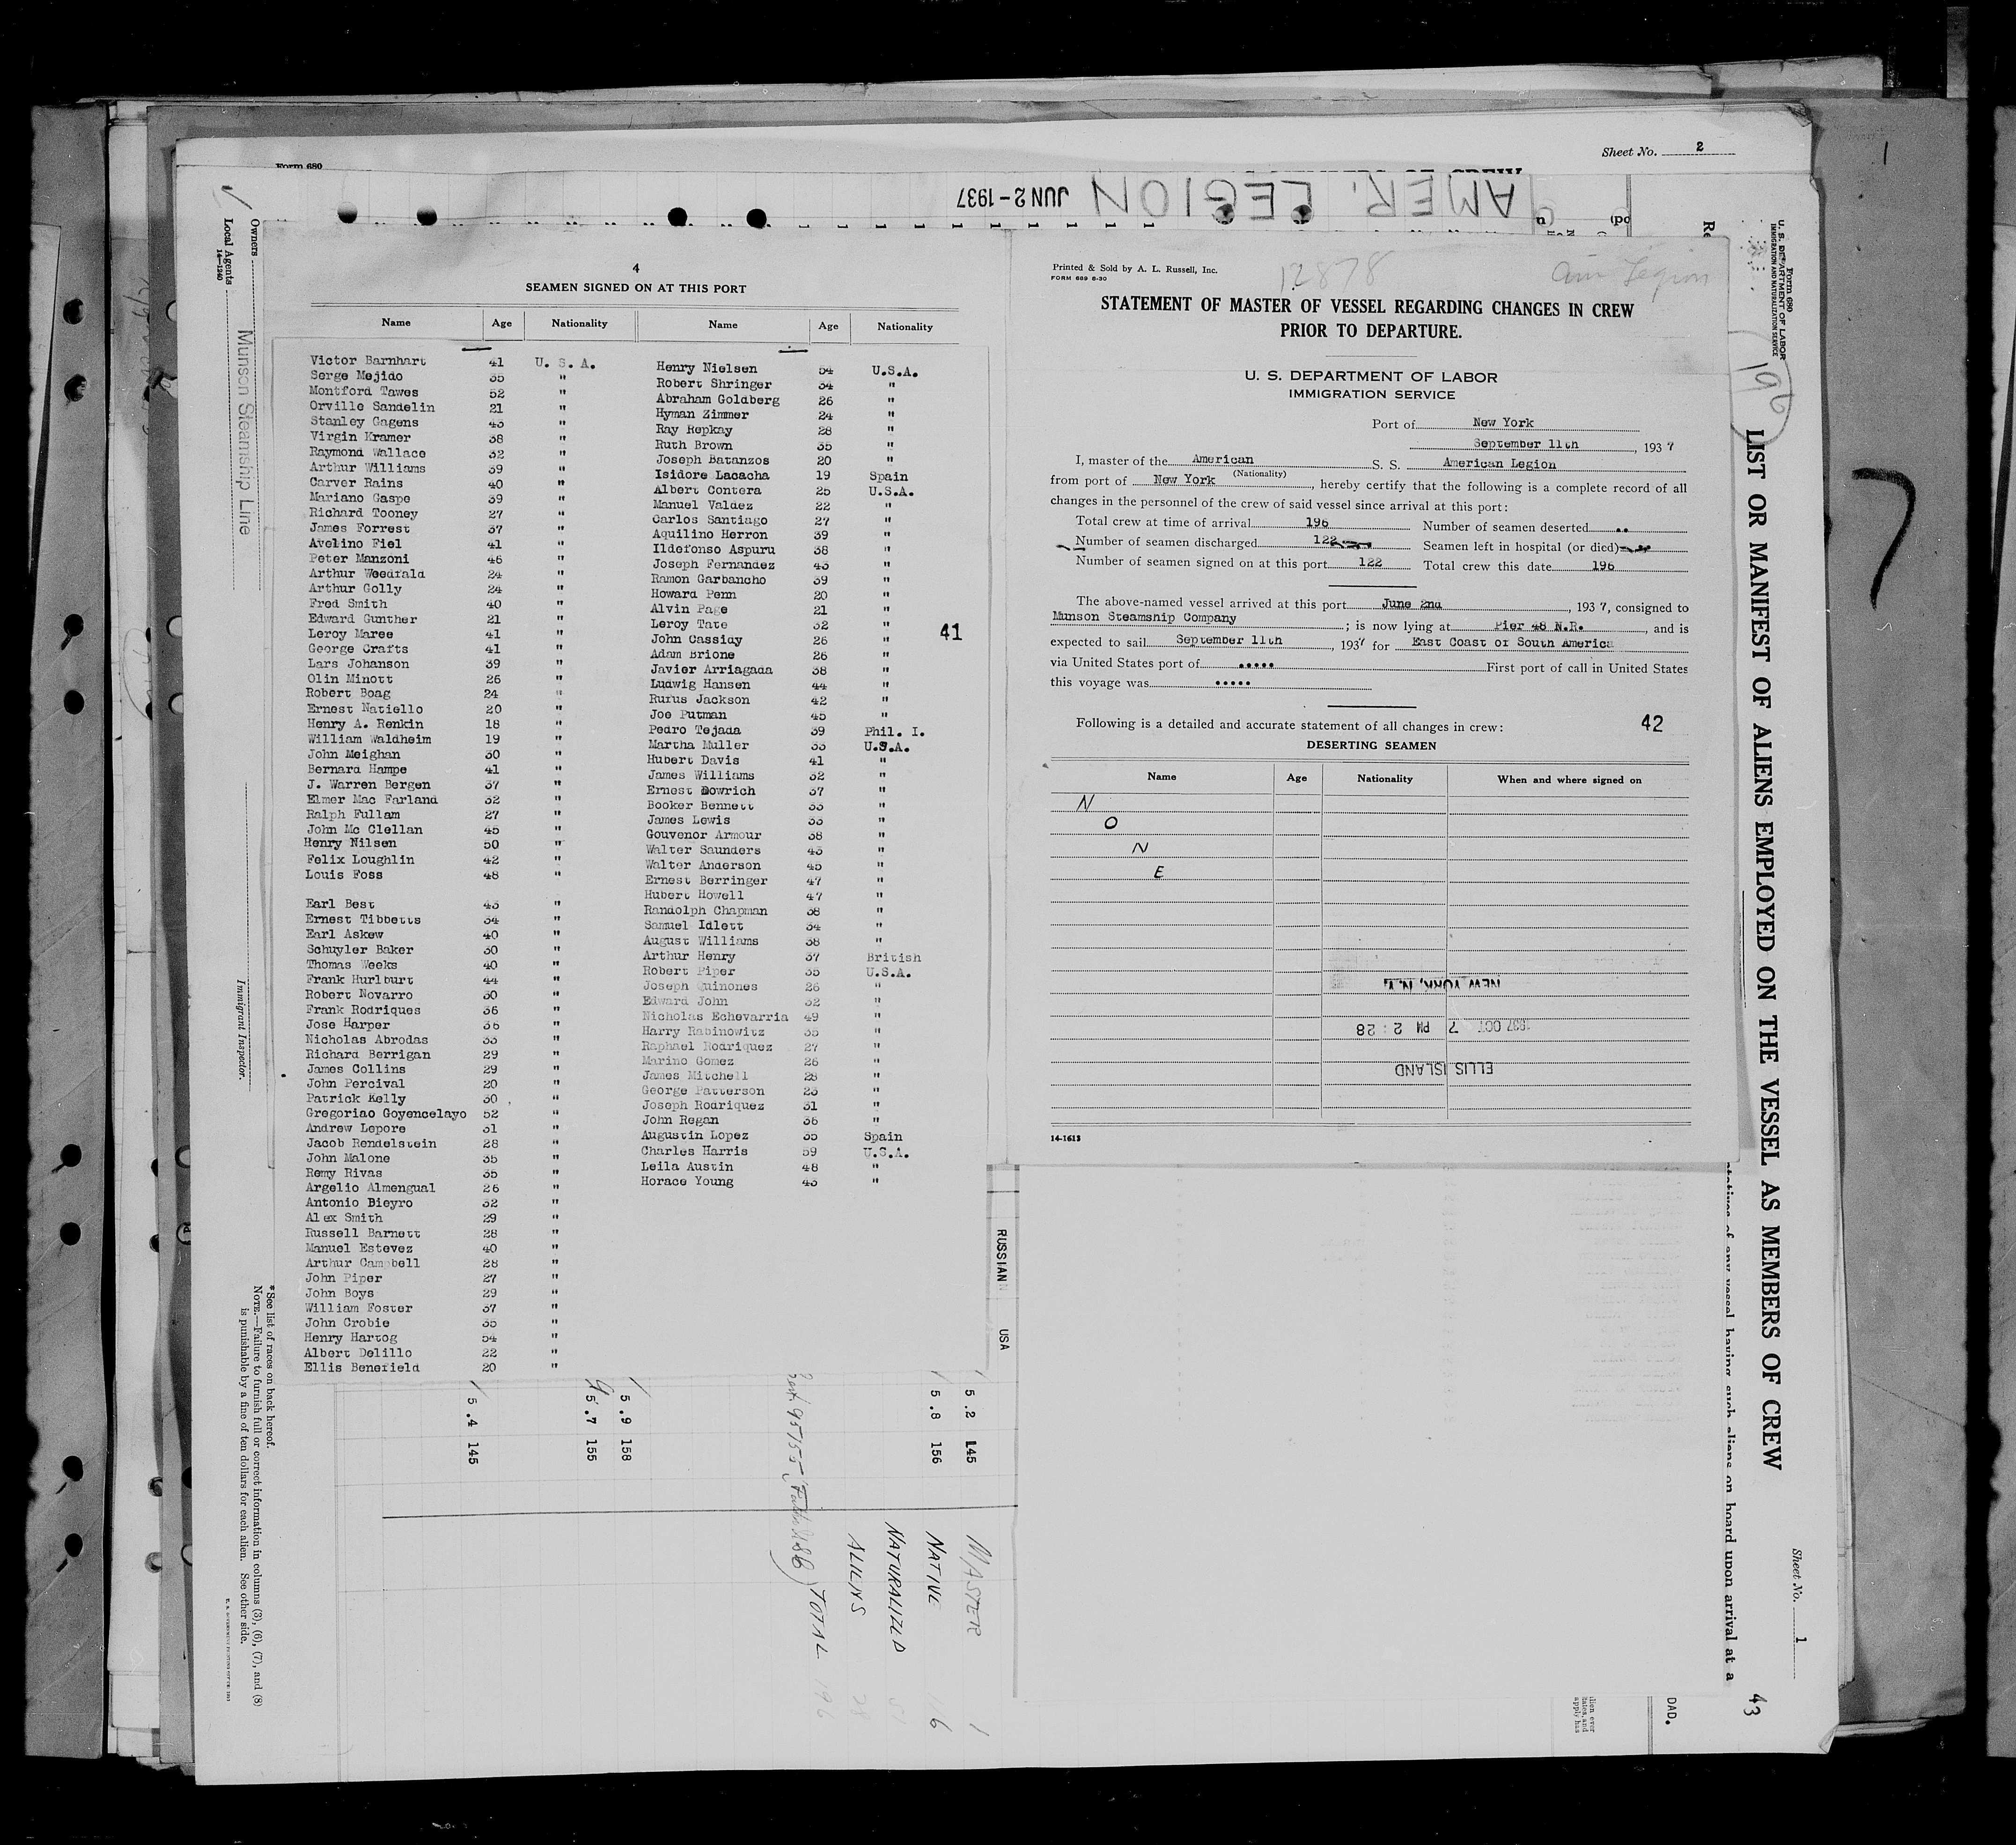 Sheet No. 2
Form 680
AMER. LEGION JUN 2-1937
4
SEAMEN SIGNED ON AT THIS PORT
Name Age Nationality Name Age Nationality
Victor Barnhart 41 U. S. A.
Serge Mejido 35 "
Montford Tawes 52 "
Orville Sandelin 21 "
Stanley Gagens 43 "
Virgin Kramer 38 "
Raymond Wallace 32 "
Arthur Williams 39 "
Carver Rains 40 "
Mariano Gaspe 39 "
Richard Tooney 27 "
James Forrest 37 "
Avelino Fiel 41 "
Peter Manzoni 46 "
Arthur Woodfald 24 "
Arthur Golly 24 "
Fred Smith 40 "
Edward Gunther 21 "
Leroy Maree 41 "
George Crafts 41 "
Lars Johanson 39 "
Olin Minott 26 "
Robert Boag 24 "
Ernest Natiello 20 "
Henry A. Renkin 18 "
William Waldheim 19 "
John Meighan 30 "
Bernard Hampe 41 "
J. Warren Bergen 37 "
Elmer Mac Farland 32 "
Ralph Fullam 27 "
John Mc Clellan 45 "
Henry Nilsen 50 "
Felix Loughlin 42 "
Louis Foss 48 "
Earl Best 43 "
Ernest Tibbetts 34 "
Earl Askew 40 "
Schuyler Baker 30 "
Thomas Weeks 40 "
Frank Hurlburt 44 "
Robert Novarro 30 "
Frank Rodriques 36 "
Jose Harper 36 "
Nicholas Abrodas 33 "
Richard Berrigan 29 "
James Collins 29 "
John Percival 20 "
Patrick Kelly 30 "
Gregoriao Goyencelayo 52 "
Andrew Lepore 31 "
Jacob Rendelstein 28 "
John Malone 35 "
Remy Rivas 35 "
Argelio Almengual 26 "
Antonio Bieyro 32 "
Alex Smith 29 "
Russell Barnett 28 "
Manuel Estevez 40 "
Arthur Campbell 28 "
John Piper 27 "
John Boys 29 "
William Foster 37 "
John Crobie 35 "
Henry Hartog 54 "
Albert Delillo 22 "
Ellis Benefield 20 "
Henry Nielsen 54 U.S.A.
Robert Shringer 34 "
Abraham Goldberg 26 "
Hyman Zimmer 24 "
Ray Repkay 28 "
Ruth Brown 35 "
Joseph Batanzos 20 "
Isidore Lacacha 19 Spain
Albert Contera 25 U.S.A.
Manuel Valdez 22 "
Carlos Santiago 27 "
Aquilino Herron 39 "
Ildefonso Aspuru 38 "
Joseph Fernandez 43 "
Ramon Garbancho 39 "
Howard Penn 20 "
Alvin Page 21 "
Leroy Tate 32 "
John Cassidy 26 "
Adam Brione 26 "
Javier Arriagada 38 "
Ludwig Hansen 44 "
Rufus Jackson 42 "
Joe Putman 45 "
Pedro Tejada 39 Phil. I.
Martha Muller 33 U.S.A.
Hubert Davis 41 "
James Williams 32 "
Ernest Dowrich 37 "
Booker Bennett 33 "
James Lewis 33 "
Gouvenor Armour 38 "
Walter Saunders 43 "
Walter Anderson 45 "
Ernest Berringer 47 "
Hubert Howell 47 "
Randolph Chapman 38 "
Samuel Idlett 34 "
August Williams 38 "
Arthur Henry 37 British
Robert Piper 35 U.S.A.
Joseph Quinones 26 "
Edward John 32 "
Nicholas Echevarria 49 "
Harry Rabinowitz 35 "
Raphael Rodriquez 27 "
Marino Gomez 26 "
James Mitchell 28 "
George Patterson 23 "
Joseph Rodriquez 31 "
John Regan 36 "
Augustin Lopez 35 Spain
Charles Harris 59 U.S.A.
Leila Austin 48 "
Horace Young 43 "
41
Printed & Sold by A. L. Russell, Inc.
FORM 689 6-30
12878
Am Legion
STATEMENT OF MASTER OF VESSEL REGARDING CHANGES IN CREW
PRIOR TO DEPARTURE.
U. S. DEPARTMENT OF LABOR
IMMIGRATION SERVICE
Port of New York
September 11th, 1937
I, master of the American S. S. American Legion
(Nationality)
from port of New York, hereby certify that the following is a complete record of all
changes in the personnel of the crew of said vessel since arrival at this port:
Total crew at time of arrival 196 Number of seamen deserted ..
Number of seamen discharged 122 Seamen left in hospital (or died)
Number of seamen signed on at this port 122 Total crew this date 196
The above-named vessel arrived at this port June 2nd, 1937, consigned to
Munson Steamship Company; is now lying at Pier 48 N.R., and is
expected to sail September 11th, 1937 for East Coast of South America
via United States port of ..... First port of call in United States
this voyage was .....
Following is a detailed and accurate statement of all changes in crew:
42
DESERTING SEAMEN
Name Age Nationality When and where signed on
N
O
N
E
NEW YORK, N.Y.
1937 OCT 7 PM 2:28
ELLIS ISLAND
14-1613
Form 680
U. S. DEPARTMENT OF LABOR
IMMIGRATION AND NATURALIZATION SERVICE
196
LIST OR MANIFEST OF ALIENS EMPLOYED ON THE VESSEL AS MEMBERS OF CREW
Sheet No. 1
43
of any vessel having such aliens on board upon arrival at a
DAD.
7
Owners
Local Agents Munson Steamship Line
14-1240
Immigrant Inspector.
* See list of races on back hereof.
NOTE.—Failure to furnish full or correct information in columns (3), (6), (7), and (8)
is punishable by a fine of ten dollars for each alien. See other side.
RUSSIAN USA
5.2 145
5.8 156
5.9 158
5.7 155
5.4 145
MASTER 1
NATIVE 116
NATURALIZED 51
ALIENS 28
TOTAL 196